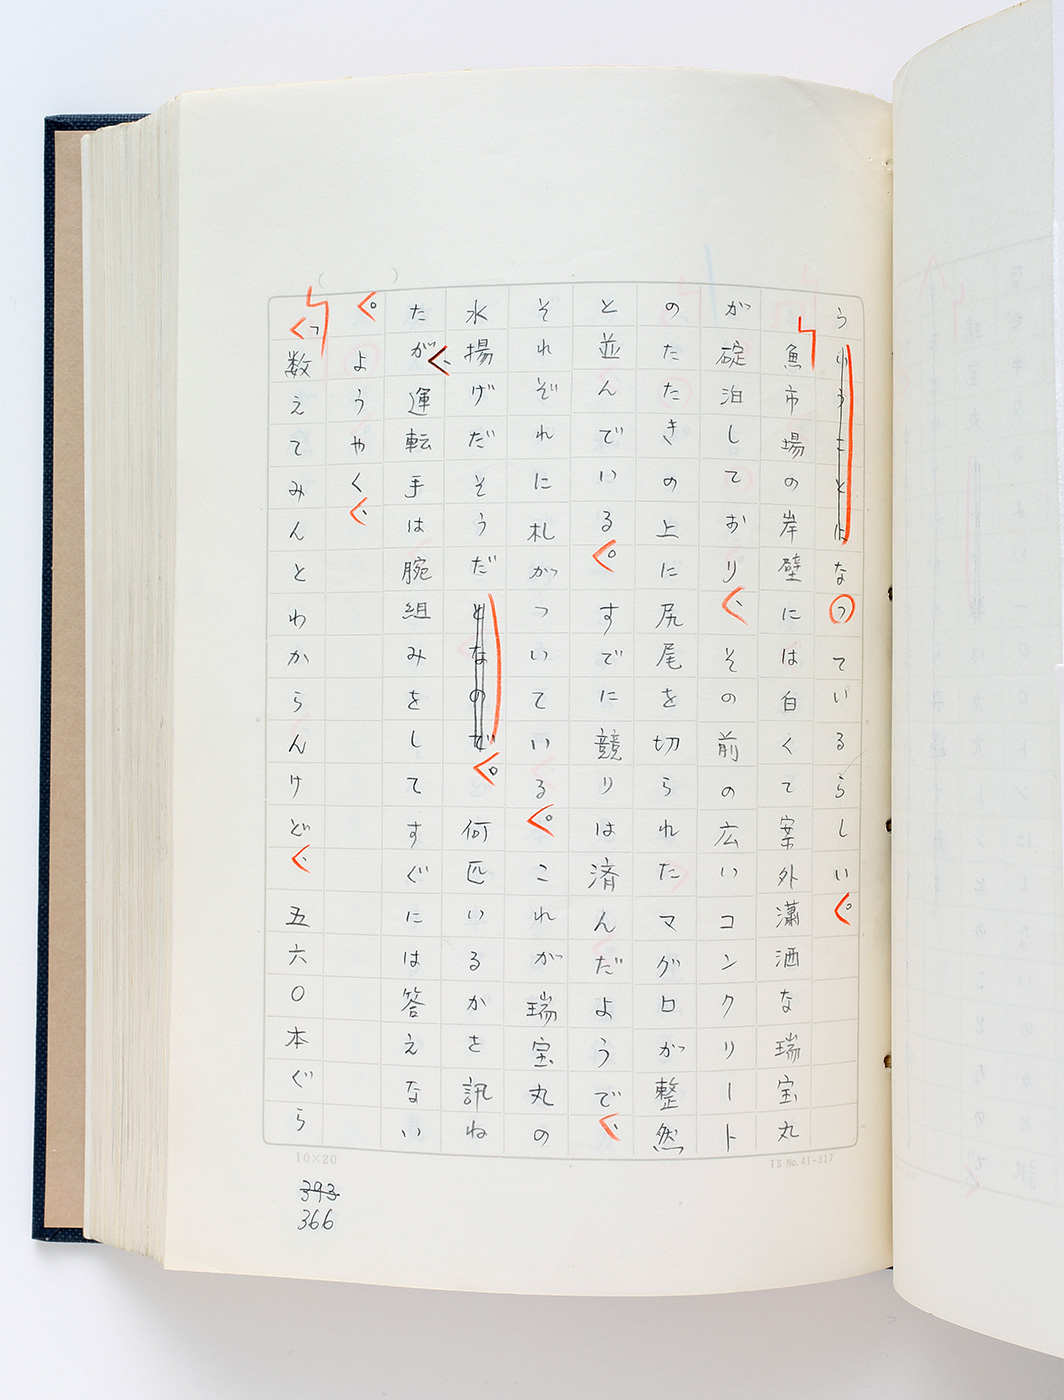 ういうことになっているらしい。
魚市場の岸壁には白くて案外瀟洒な瑞宝丸
が碇泊しており、その前の広いコンクリート
のたたきの上に尻尾を切られたマグロが整然
と並んでいる。すでに競りは済んだようで、
それぞれに札がついている。これが瑞宝丸の
水揚げだそうだとなので。何匹いるかを訊ね
たが、運転手は腕組みをしてすぐには答えない
。ようやく、
「数えてみんとわからんけど、五六〇本ぐら
10×20
393
366